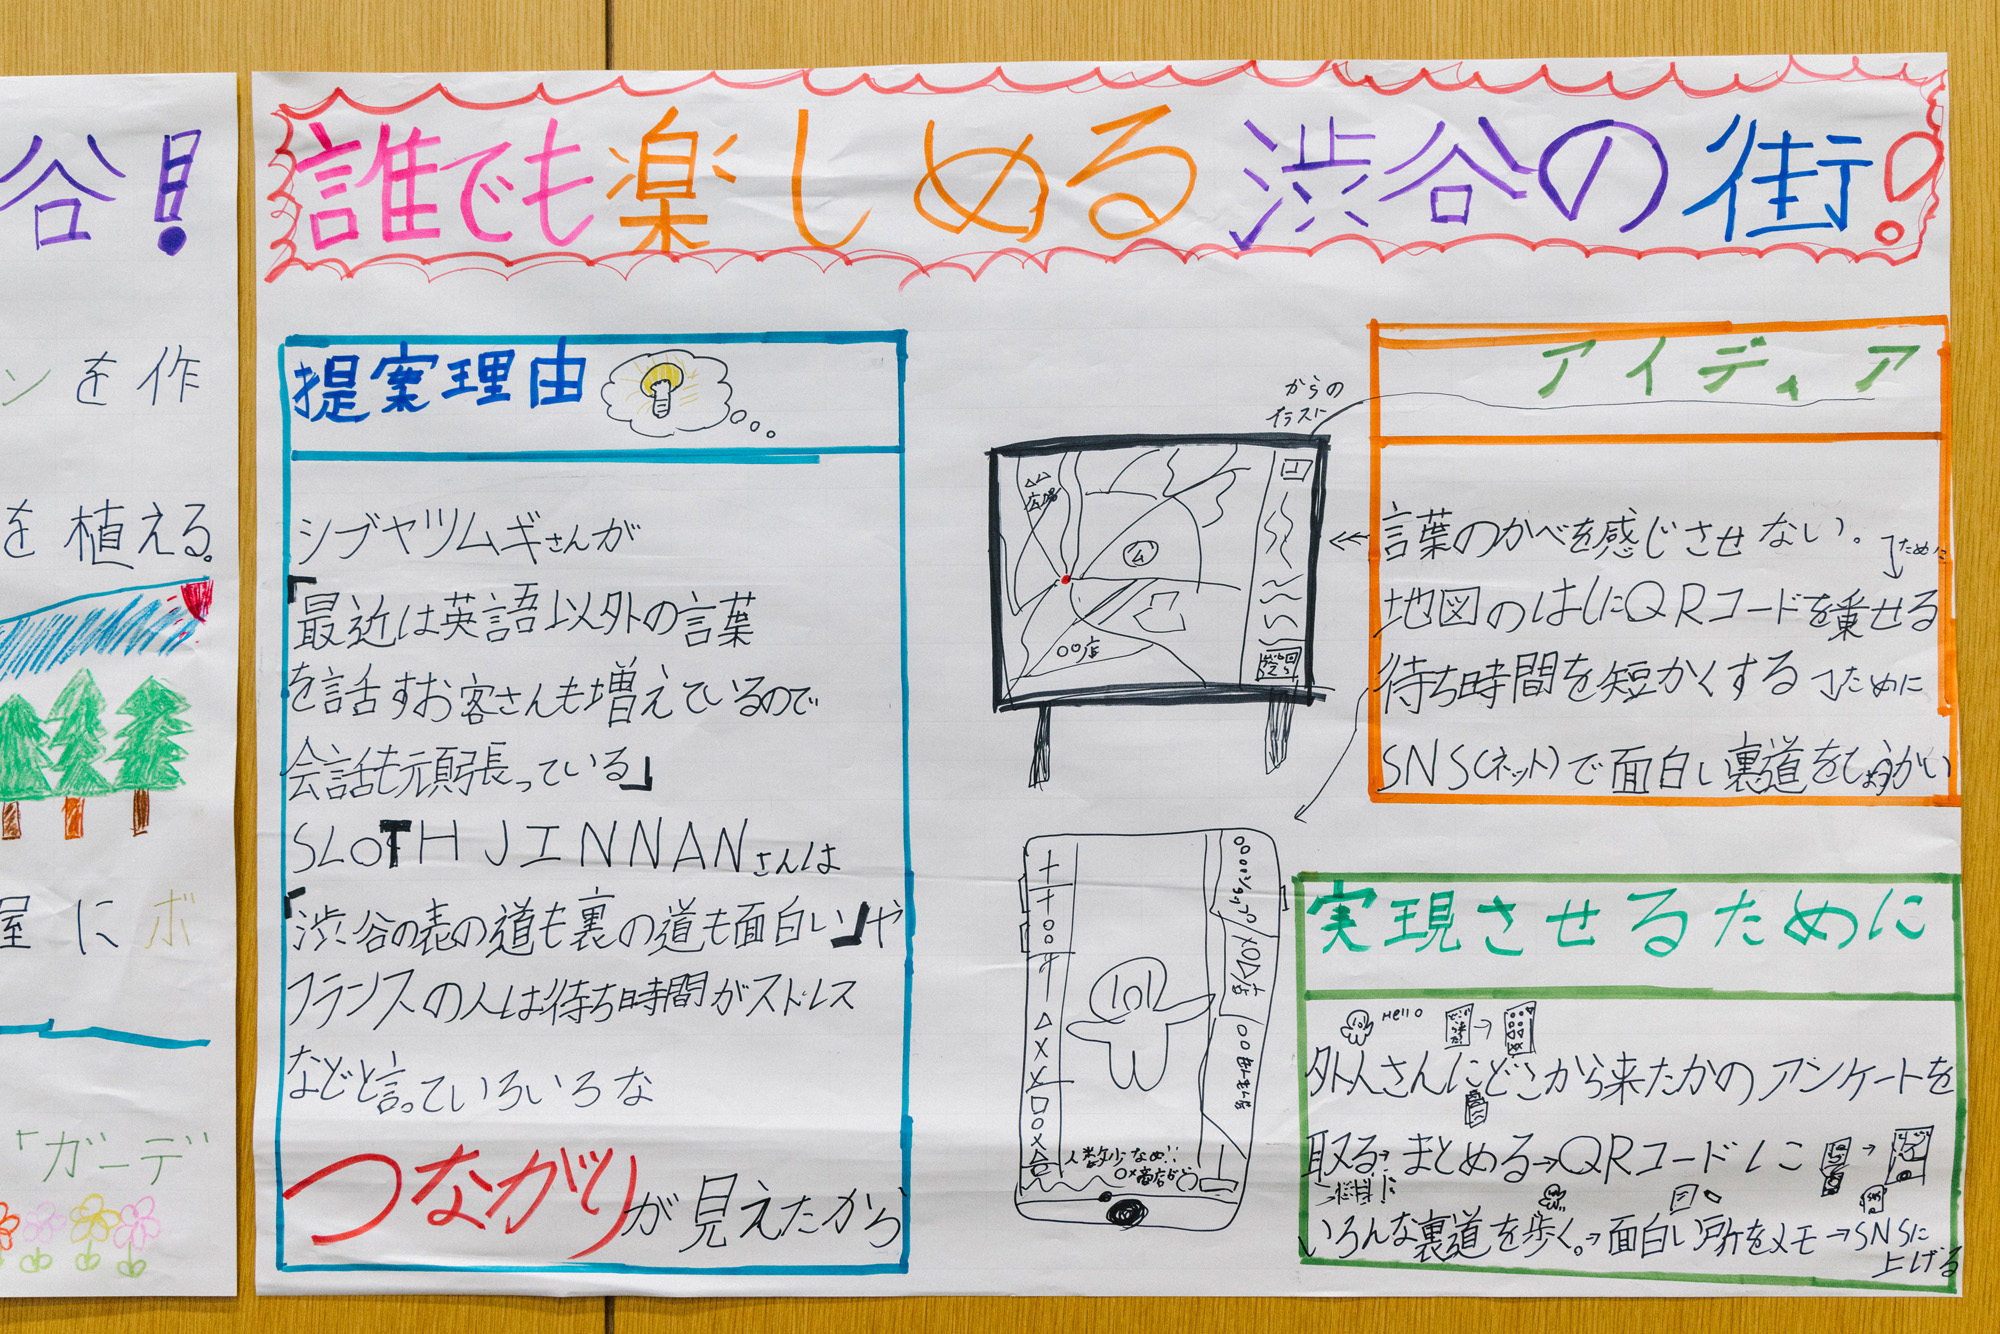 谷!
ンを作
を植える。
屋にボ
「ガーデ
誰でも楽しめる渋谷の街!
提案理由
シブヤツムギさんが
「最近は英語以外の言葉
を話すお客さんも増えているので
会話も頑張っている」
SLOTH JINNANさんは
「渋谷の表の道も裏の道も面白い」や
フランスの人は待ち時間がストレス
などと言っていろいろな
つながりが見えたから
からの
イラスト
広場
〇〇店
人数少なめ!!
アイディア
言葉のかべを感じさせない。
ために
地図のはしにQRコードを乗せる
待ち時間を短かくする
ために
SNS(ネット)で面白い裏道をしょうかい
実現させるために
Hello
外人さんにどこから来たかのアンケートを
取る→まとめる→QRコードに
いろんな裏道を歩く。→面白い所をメモ→SNSに
上げる